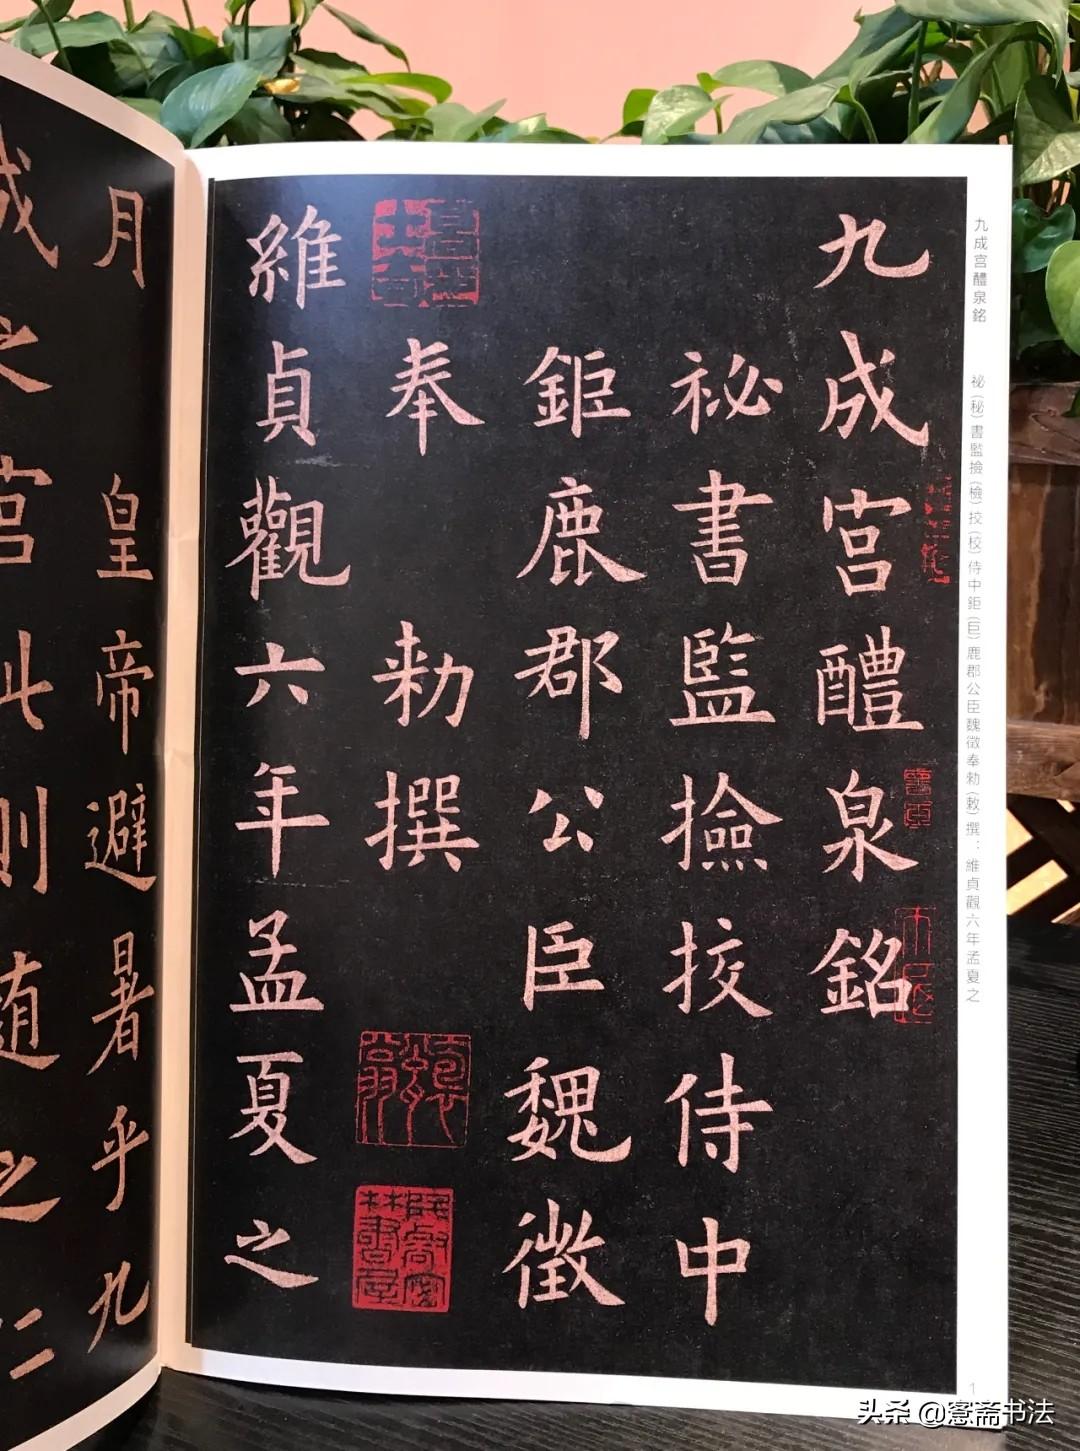 九成宫醴泉銘
祕書監撿挍侍中
鉅鹿郡公臣魏徵
奉勅撰
維貞觀六年孟夏之
月皇帝避暑乎九
成之宫此則随之仁
九成宫醴泉銘 祕(秘)書監撿(檢)挍(校)侍中鉅(巨)鹿郡公臣魏徵奉勅(敕)撰：維貞觀六年孟夏之
1
头条 @窓斋书法